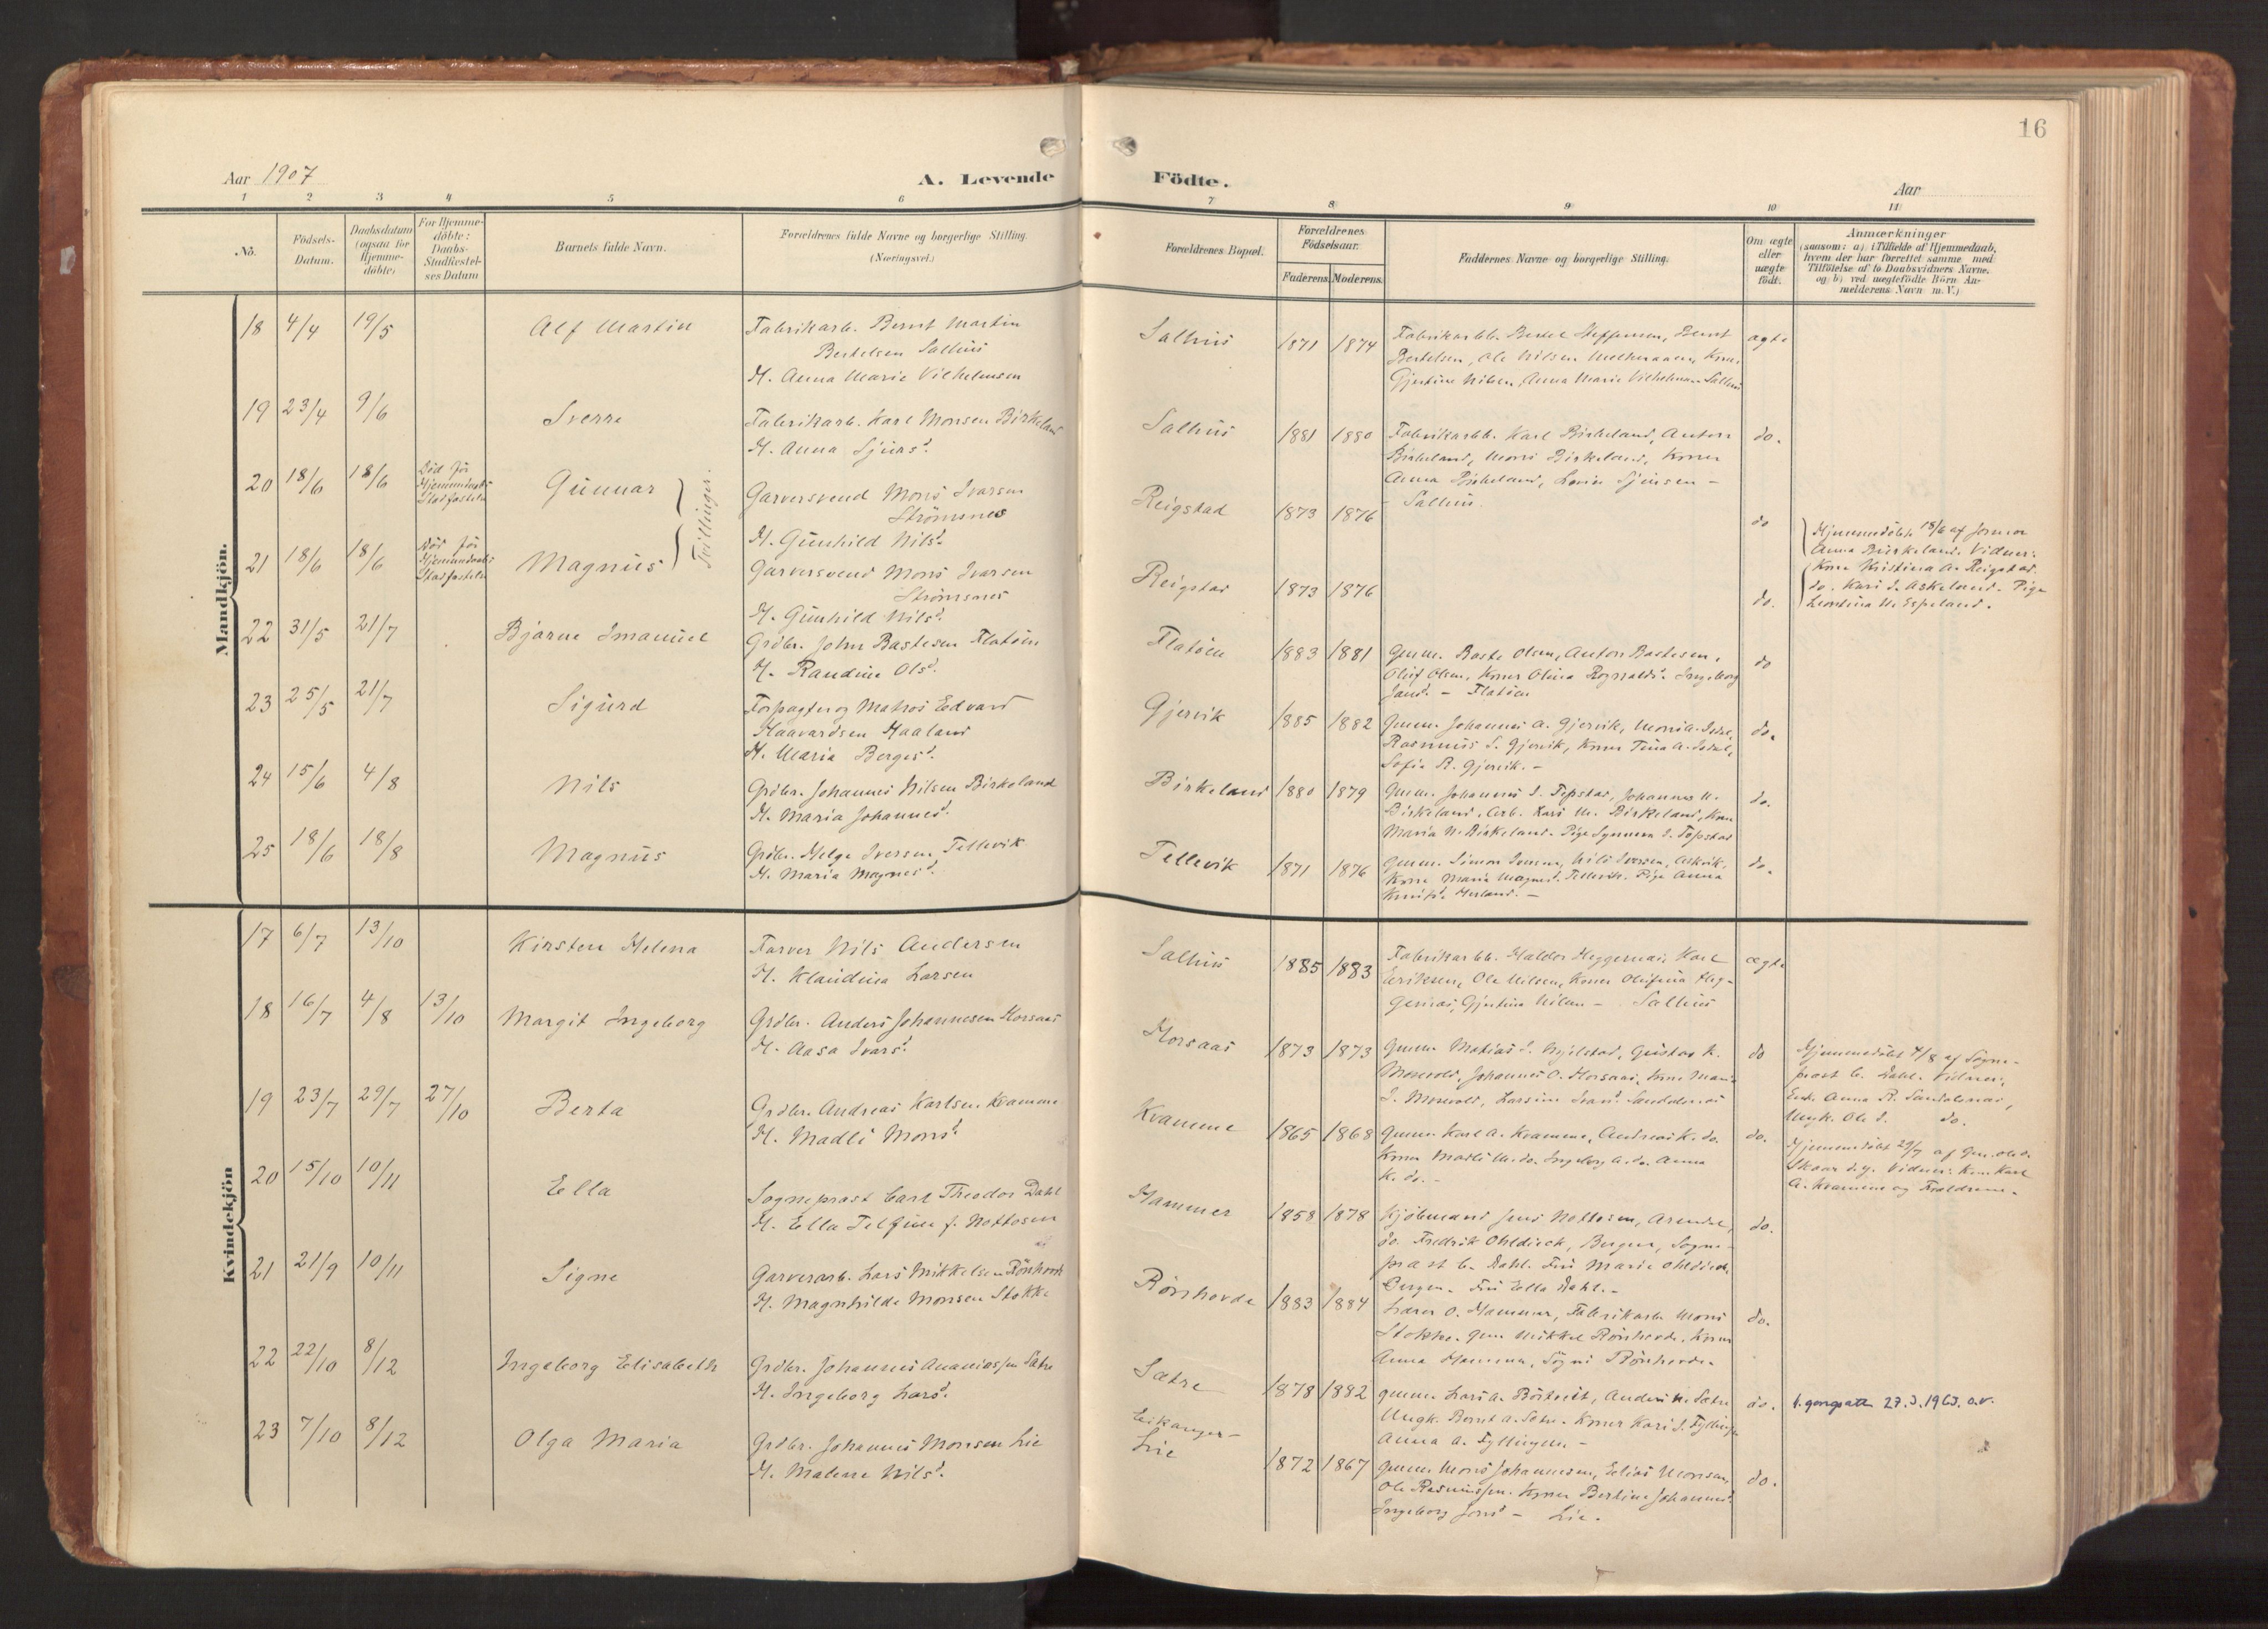 16
Aar 1907
A. Levende
Födte.
Aar
1 2 3 4 5 6
7 8 9 10 11
No.
Födsels-
Datum.
Daabsdatum
(ogsaa for
Hjemme-
döbte)
For Hjemme-
döbte:
Daabs-
Stadfæstel-
ses Datum
Barnets fulde Navn.
Forældrenes fulde Navne og borgerlige Stilling.
(Næringsvei.)
Forældrenes Bopæl.
Forældrenes
Födselsaar.
Faderens. Moderens.
Faddernes Navne og borgerlige Stilling.
Om ægte
eller
uægte
födt.
Anmærkninger
(saasom: a) i Tilfælde af Hjemmedaab,
hvem der har forrettet samme med
Tilföielse af to Daabsvidners Navne.
og b) ved uægtefödte Börn An-
melderens Navn m. V.)
Mandkjön.
18 4/4 19/5 Alf Martin
Fabrikarb. Bernt Martin
Bertelsen Salhus
H. Anna Marie Vilhelmsen
Salhus 1871 1874
Fabrikarbb. Bertel Steffensen, Bernt
Bertelsen, Ole Nilsen Konr
Gjertine Nilsen, Anna Marie Vilhelmsen Salhus
ægte
19 23/4 9/6 Sverre
Fabrikarb. Karl Monsen Birkeland
H. Anna Sjursd.
Salhus 1881 1880
Fabrikarbb. Karl Birkeland, Anton
Birkeland, Mons Birkeland, Koner
Anna Birkeland, Lovise Sjursen -
- Salhus.
do.
20 18/6 18/6
Död för
Hjemmedaabs
Stadfæstelse
Gunnar
Tvillinger.
Garversvend Mons Ivarsen
Strömsnes
H. Gunhild Nilsd.
Reigstad 1873 1876
do
21 18/6 18/6
Död för
Hjemmedaabs
Stadfæstelse
Magnus
Garversvend Mons Ivarsen
Strömsnes
H. Gunhild Nilsd.
Reigstad 1873 1876
do.
Hjemmedöbt 18/6 af Jormor
Anna Birkeland. Vidner:
Kone Kristina A. Reigstad.
do. Kari I. Askeland. Pige
Leontina N. Espeland.
22 31/5 21/7 Bjarne Imanuel
Grdbr. John Bastesen Flatöen
H. Randine Olsd.
Flatöen 1883 1881
Gmm. Baste Olsen, Anton Bastesen,
Oluf Olsen, Koner Olina Rognaldsd. Ingeborg
Jansd. - Flatöen
do
23 25/5 21/7 Sigurd
Forpagter og Matros Edvard
Haavardsen Haaland
H. Maria Bergesd.
Gjervik 1885 1882
Gmm. Johannes A. Gjervik, Mons A. Isdal,
Rasmus S. Gjervik, Koner Tina A. Isdal,
Sofie R. Gjervik. -
do.
24 15/6 4/8 Nils
Grdbr. Johannes Nilsen Birkeland
H. Maria Johannesd.
Birkeland 1880 1879
Gmm. Johannes I. Tepstad, Johannes N.
Birkeland, Arb. Lars M. Birkeland, Kone
Maria N. Birkeland. Pige Synneva I. Tepstad
do.
25 18/6 18/8 Magnus
Grdbr. Helge Iversen Tellevik
H. Maria Magnesd.
Tellevik 1871 1876
Gmm. Simon Iversen, Nils Iversen, Askvik.
Kone Maria Magnesd. Tellevik. Pige Anna
Knutsd. Herland. -
do.
Kvindekjön
17 6/7 13/10 Kirsten Helena
Farver Nils Andersen
H. Klaudina Larsen
Salhus 1885 1883
Fabrikarbb. Haldor Heggernæs, Karl
Eriksen, Ole Nilsen, Koner Olufina Heg-
gernæs, Gjertine Nilsen - Salhus
ægte
18 16/7 4/8 13/10 Margit Ingeborg
Grdbr. Anders Johannesen Horsaas
H. Aasa Ivarsd.
Horsaas 1873 1873
Gmm. Matias I. Mjelstad, Gustav K.
Mosevold, Johannes O. Horsaas, Kone Mari
I. Mosevold, Larsine Ivarsd.
do
Hjemmedöbt 4/8 af Sogne-
prest C. Dahl. Vidner:
Enk. Anna R.
Ungk. Ole I. do.
19 23/7 29/7 27/10 Berta
Grdbr. Andreas Karlsen Kvamme
H. Madli Monsd.
Kvamme 1865 1868
Gmm. Karl A. Kvamme, Andreas K. do.
Koner Madli M. do. Ingeborg A. do. Anna
K. do. -
do.
Hjemmedöbt 29/7 af Gm. Ole O.
Skaar d.y. Vidner: Gm. Karl
A. Kvamme og Forældrene.
20 15/10 10/11 Ella
Sogneprest Carl Theodor Dahl
H. Ella Telfine f. Nottosen
Hammer 1858 1878
Kjöbmand Jens Nottosen, Arendal,
do. Fredrik Ohldieck, Bergen, Sogne-
prest C. Dahl. Fru Marie Ohldieck,
Bergen. Fru Ella Dahl. -
do.
21 21/9 10/11 Signe
Garverarb. Lars Mikkelsen Rönhovde
H. Magnhilda Monsen Stokke
Rönhovde 1883 1884
Lærer O. Hammer, Fabrikarb. Mons
Stokke. Gm. Mikkel Rönhovde, Koner
Anna Hammer, Sögni Rönhovde.
do.
22 22/10 8/12 Ingeborg Elisabeth
Grdbr. Johannes Ananiassen Sætre
H. Ingeborg Larsd.
Sætre 1878 1882
Gmm. Lars A. Börtveit, Anders N. Sætre
Ungk. Bernt A. Sætre. Koner Kari I. Fyllingen
Anna A. Fyllingen -
do. 27.3.1963. o.v.
23 7/10 8/12 Olga Maria
Grdbr. Johannes Monsen Lie
H. Malene Nilsd.
Eikanger-
Lie
1872 1867
Gmm. Mons Johannesen, Elias Monsen,
Ole Rasmussen. Koner Bertine Johannesd.
Ingeborg Jonsd. - Lie.
do.